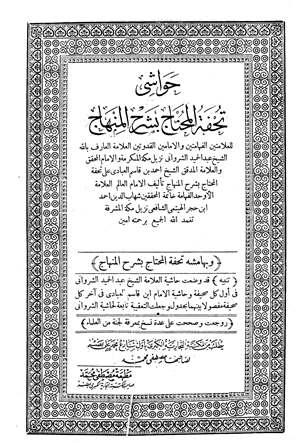 حواشي
تحفة المحتاج بشرح المنهاج
للعلامتين الفهامتين والامامين القدوتين العلامة العارف بالله
الشيخ عبد الحميد الشرواني نزيل مكة المكرمة والامام المحقق
والعلامة المدقق الشيخ احمد بن قاسم العبادي على تحفة
المحتاج بشرح المنهاج تأليف الامام العالم العلامة
الأوحد الفهامة خاتمة المحققين شهاب الدين احمد
ابن حجر الهيتمي الشافعي نزيل مكة المشرفة
تغمد الله الجميع برحمته آمين
﴿ وبهامشه تحفة المحتاج بشرح المنهاج ﴾
﴿ تنبيه ﴾ قد وضعت حاشية العلامة الشيخ عبد الحميد الشرواني
في أول كل صحيفة وحاشية الامام ابن قاسم العبادي في آخر كل
صحيفة مفصولا بينهما بجدول وجعلت التقييد تابعة لحاشية الشرواني
﴿ روجعت وصححت على عدة نسخ بمعرفة لجنة من العلماء ﴾
يطلب من المكتبة التجارية الكبرى بأول شارع محمد علي بمصر
لصاحبها مصطفى محمد
مطبعة مصطفى محمد